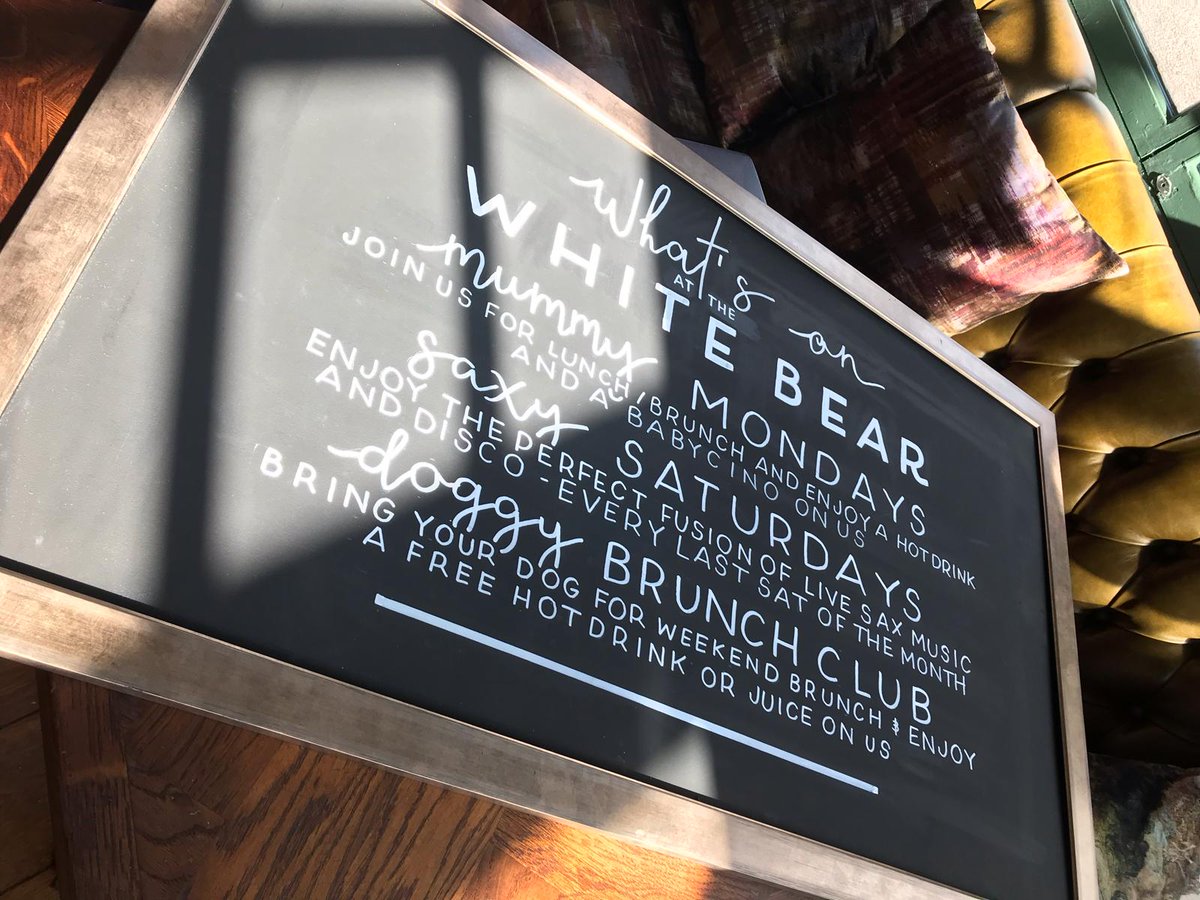 What's on
AT THE
WHITE BEAR
mummy MONDAYS
JOIN US FOR LUNCH/BRUNCH AND ENJOY A HOT DRINK
AND A BABYCINO ON US
saxy SATURDAYS
ENJOY THE PERFECT FUSION OF LIVE SAX MUSIC
AND DISCO - EVERY LAST SAT OF THE MONTH
doggy BRUNCH CLUB
BRING YOUR DOG FOR WEEKEND BRUNCH & ENJOY
A FREE HOT DRINK OR JUICE ON US